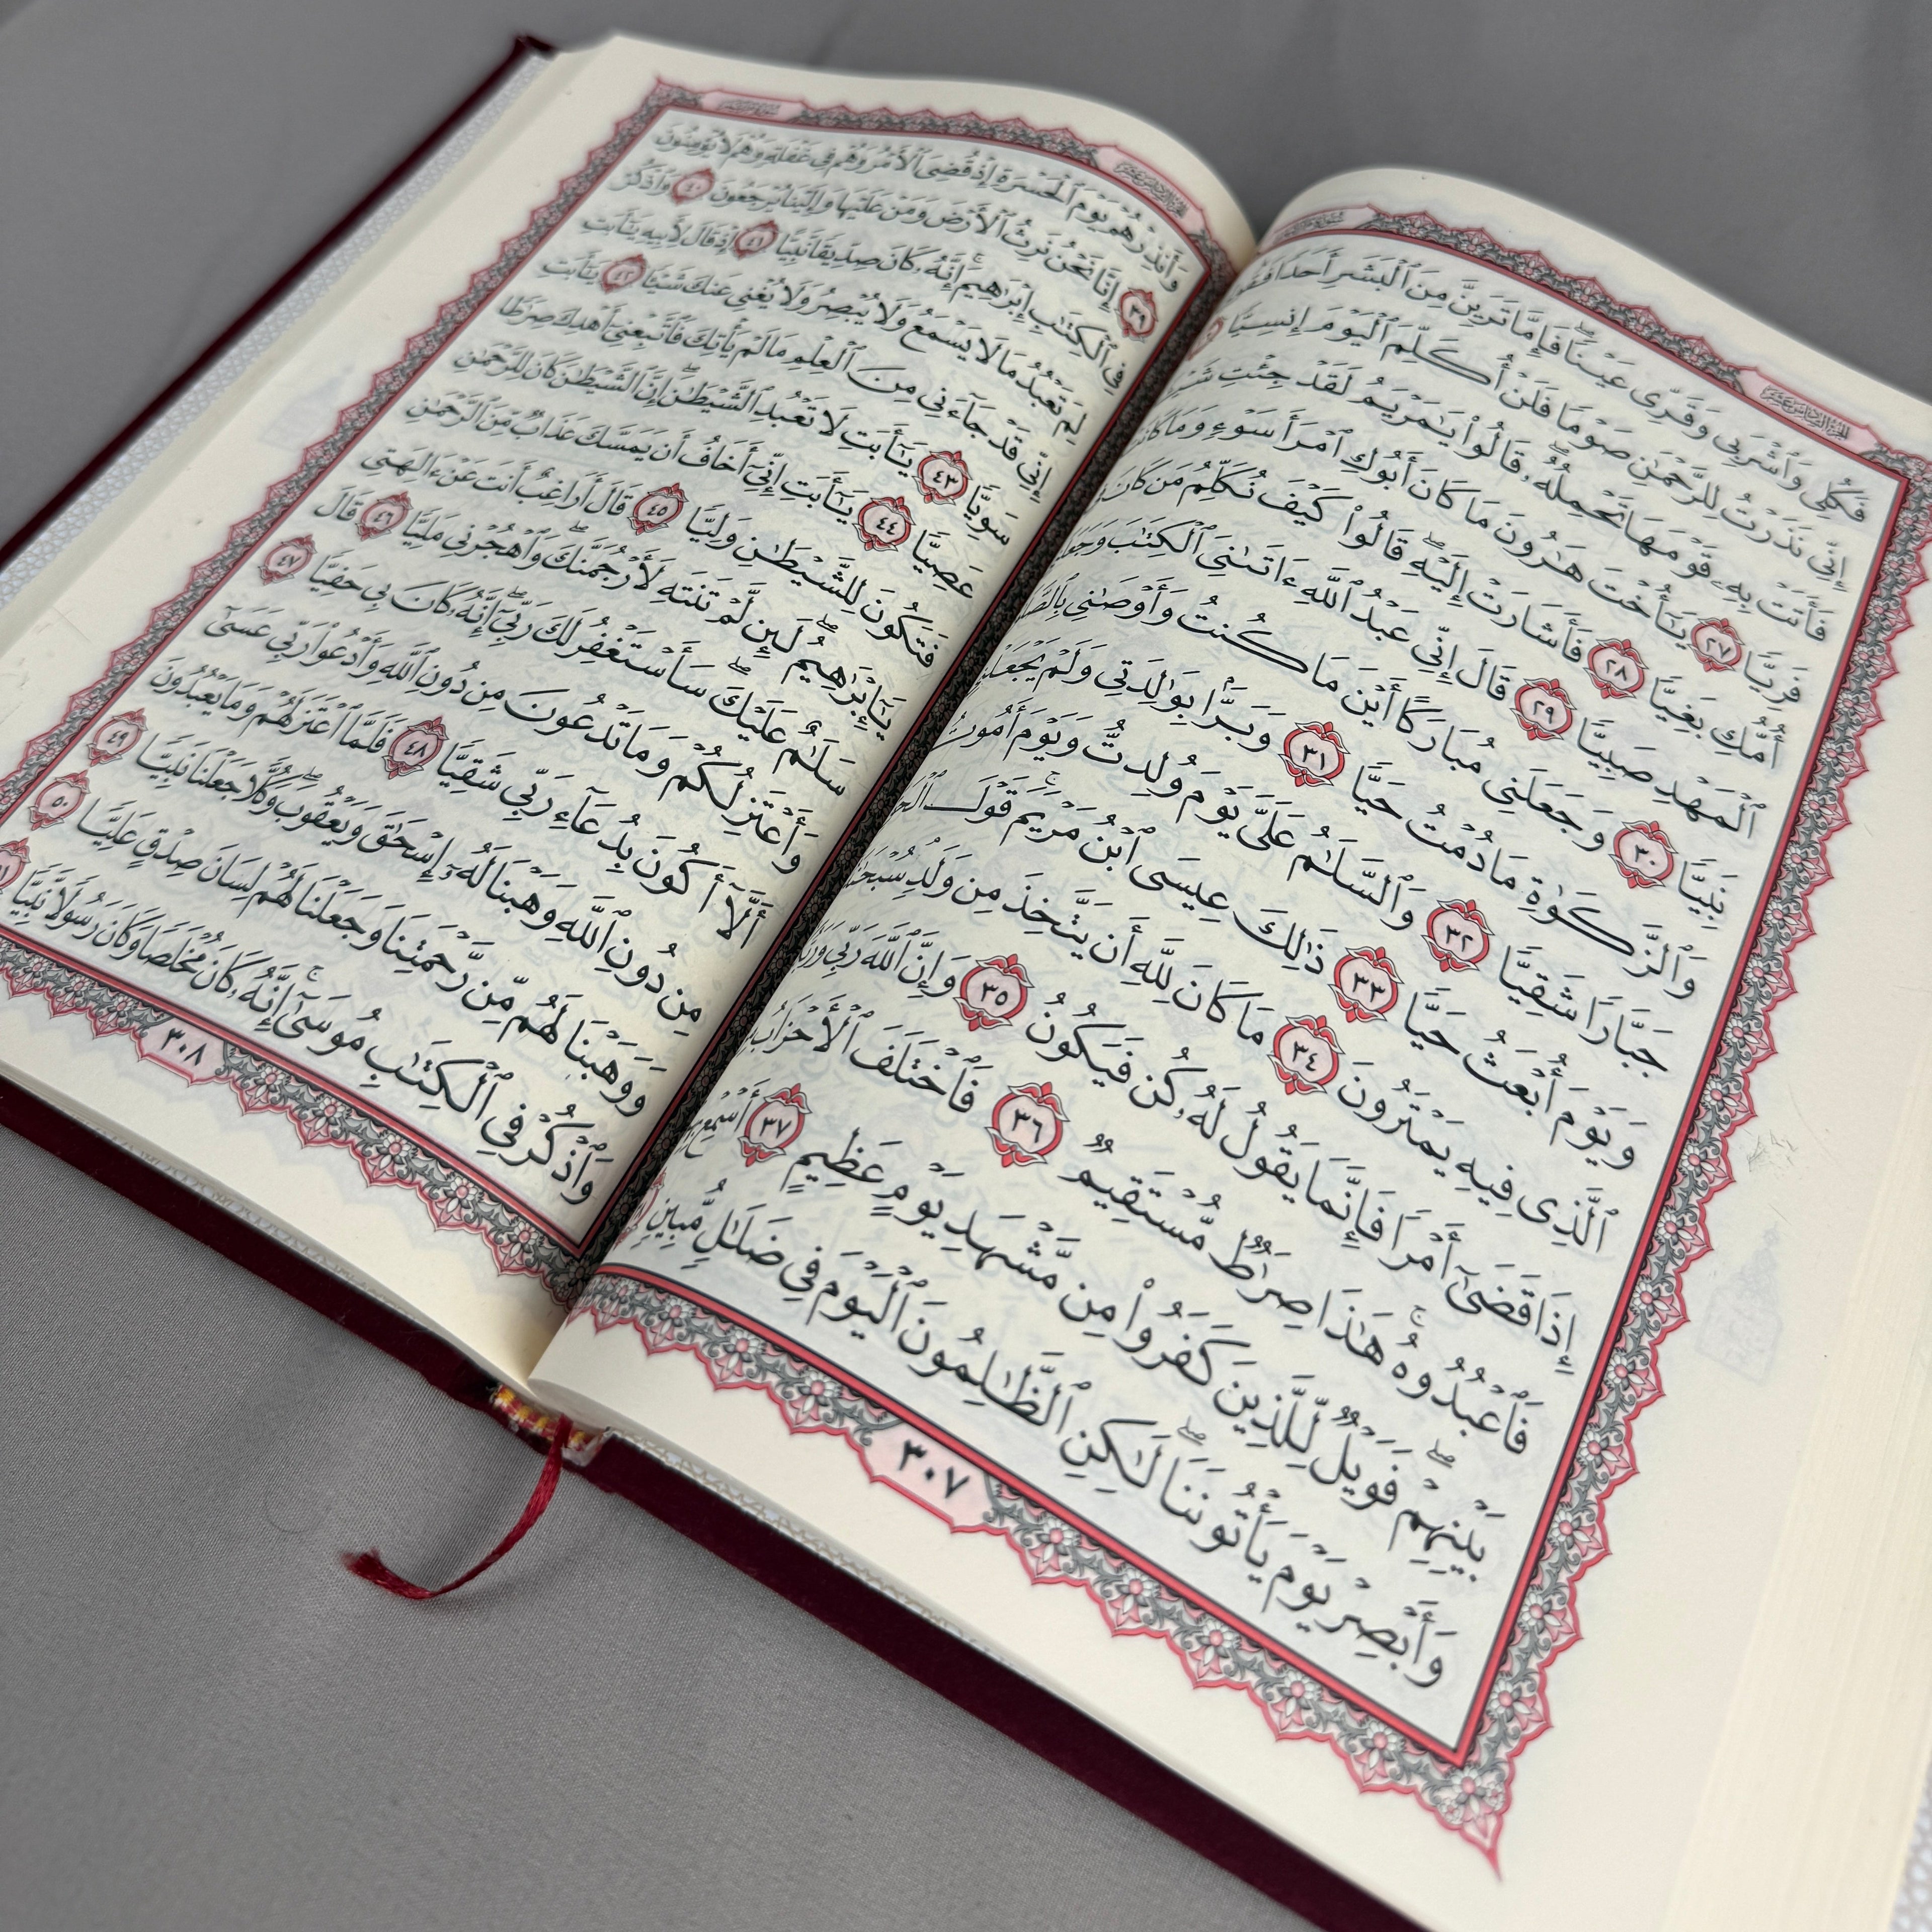 الجزء السادس عشر
فَكُلِى وَٱشْرَبِى وَقَرِّى عَيْنًا ۖ فَإِمَّا تَرَيِنَّ مِنَ ٱلْبَشَرِ أَحَدًا
إِنِّى نَذَرْتُ لِلرَّحْمَٰنِ صَوْمًا فَلَنْ أُكَلِّمَ ٱلْيَوْمَ إِنسِيًّا
فَأَتَتْ بِهِۦ قَوْمَهَا تَحْمِلُهُۥ ۖ قَالُوا۟ يَٰمَرْيَمُ لَقَدْ جِئْتِ
فَرِيًّا ٢٧ يَٰٓأُخْتَ هَٰرُونَ مَا كَانَ أَبُوكِ ٱمْرَأَ سَوْءٍ وَمَا
أُمُّكِ بَغِيًّا ٢٨ فَأَشَارَتْ إِلَيْهِ ۖ قَالُوا۟ كَيْفَ نُكَلِّمُ مَن كَانَ
ٱلْمَهْدِ صَبِيًّا ٢٩ قَالَ إِنِّى عَبْدُ ٱللَّهِ ءَاتَىٰنِىَ ٱلْكِتَٰبَ
نَبِيًّا ٣٠ وَجَعَلَنِى مُبَارَكًا أَيْنَ مَا كُنتُ وَأَوْصَٰنِى
وَٱلزَّكَوٰةِ مَا دُمْتُ حَيًّا ٣١ وَبَرًّۢا بِوَٰلِدَتِى وَلَمْ
جَبَّارًا شَقِيًّا ٣٢ وَٱلسَّلَٰمُ عَلَىَّ يَوْمَ وُلِدتُّ وَيَوْمَ أَمُوتُ
وَيَوْمَ أُبْعَثُ حَيًّا ٣٣ ذَٰلِكَ عِيسَى ٱبْنُ مَرْيَمَ ۚ قَوْلَ
ٱلَّذِى فِيهِ يَمْتَرُونَ ٣٤ مَا كَانَ لِلَّهِ أَن يَتَّخِذَ مِن وَلَدٍ ۖ
إِذَا قَضَىٰٓ أَمْرًا فَإِنَّمَا يَقُولُ لَهُۥ كُن فَيَكُونُ ٣٥ وَإِنَّ ٱللَّهَ رَبِّى
فَٱعْبُدُوهُ ۚ هَٰذَا صِرَٰطٌ مُّسْتَقِيمٌ ٣٦ فَٱخْتَلَفَ ٱلْأَحْزَابُ
بَيْنِهِمْ ۖ فَوَيْلٌ لِّلَّذِينَ كَفَرُوا۟ مِن مَّشْهَدِ يَوْمٍ عَظِيمٍ ٣٧ أَسْمِعْ
وَأَبْصِرْ يَوْمَ يَأْتُونَنَا ۖ لَٰكِنِ ٱلظَّٰلِمُونَ ٱلْيَوْمَ فِى ضَلَٰلٍ مُّبِينٍ
٣٠٧
الجزء السادس عشر
وَأَنذِرْهُمْ يَوْمَ ٱلْحَسْرَةِ إِذْ قُضِىَ ٱلْأَمْرُ وَهُمْ فِى غَفْلَةٍ وَهُمْ لَا يُؤْمِنُونَ
٣٩ إِنَّا نَحْنُ نَرِثُ ٱلْأَرْضَ وَمَنْ عَلَيْهَا وَإِلَيْنَا يُرْجَعُونَ ٤٠ وَٱذْكُرْ
فِى ٱلْكِتَٰبِ إِبْرَٰهِيمَ ۚ إِنَّهُۥ كَانَ صِدِّيقًا نَّبِيًّا ٤١ إِذْ قَالَ لِأَبِيهِ يَٰٓأَبَتِ
لِمَ تَعْبُدُ مَا لَا يَسْمَعُ وَلَا يُبْصِرُ وَلَا يُغْنِى عَنكَ شَيْـًٔا ٤٢ يَٰٓأَبَتِ
إِنِّى قَدْ جَآءَنِى مِنَ ٱلْعِلْمِ مَا لَمْ يَأْتِكَ فَٱتَّبِعْنِىٓ أَهْدِكَ صِرَٰطًا
سَوِيًّا ٤٣ يَٰٓأَبَتِ لَا تَعْبُدِ ٱلشَّيْطَٰنَ ۖ إِنَّ ٱلشَّيْطَٰنَ كَانَ لِلرَّحْمَٰنِ
عَصِيًّا ٤٤ يَٰٓأَبَتِ إِنِّىٓ أَخَافُ أَن يَمَسَّكَ عَذَابٌ مِّنَ ٱلرَّحْمَٰنِ
فَتَكُونَ لِلشَّيْطَٰنِ وَلِيًّا ٤٥ قَالَ أَرَاغِبٌ أَنتَ عَنْ ءَالِهَتِى
يَٰٓإِبْرَٰهِيمُ ۖ لَئِن لَّمْ تَنتَهِ لَأَرْجُمَنَّكَ ۖ وَٱهْجُرْنِى مَلِيًّا ٤٦ قَالَ
سَلَٰمٌ عَلَيْكَ ۖ سَأَسْتَغْفِرُ لَكَ رَبِّىٓ ۖ إِنَّهُۥ كَانَ بِى حَفِيًّا ٤٧
وَأَعْتَزِلُكُمْ وَمَا تَدْعُونَ مِن دُونِ ٱللَّهِ وَأَدْعُوا۟ رَبِّى عَسَىٰٓ
أَلَّآ أَكُونَ بِدُعَآءِ رَبِّى شَقِيًّا ٤٨ فَلَمَّا ٱعْتَزَلَهُمْ وَمَا يَعْبُدُونَ
مِن دُونِ ٱللَّهِ وَهَبْنَا لَهُۥٓ إِسْحَٰقَ وَيَعْقُوبَ ۖ وَكُلًّا جَعَلْنَا نَبِيًّا ٤٩
وَوَهَبْنَا لَهُم مِّن رَّحْمَتِنَا وَجَعَلْنَا لَهُمْ لِسَانَ صِدْقٍ عَلِيًّا ٥٠
وَٱذْكُرْ فِى ٱلْكِتَٰبِ مُوسَىٰٓ ۚ إِنَّهُۥ كَانَ مُخْلَصًا وَكَانَ رَسُولًا نَّبِيًّا
٣٠٨